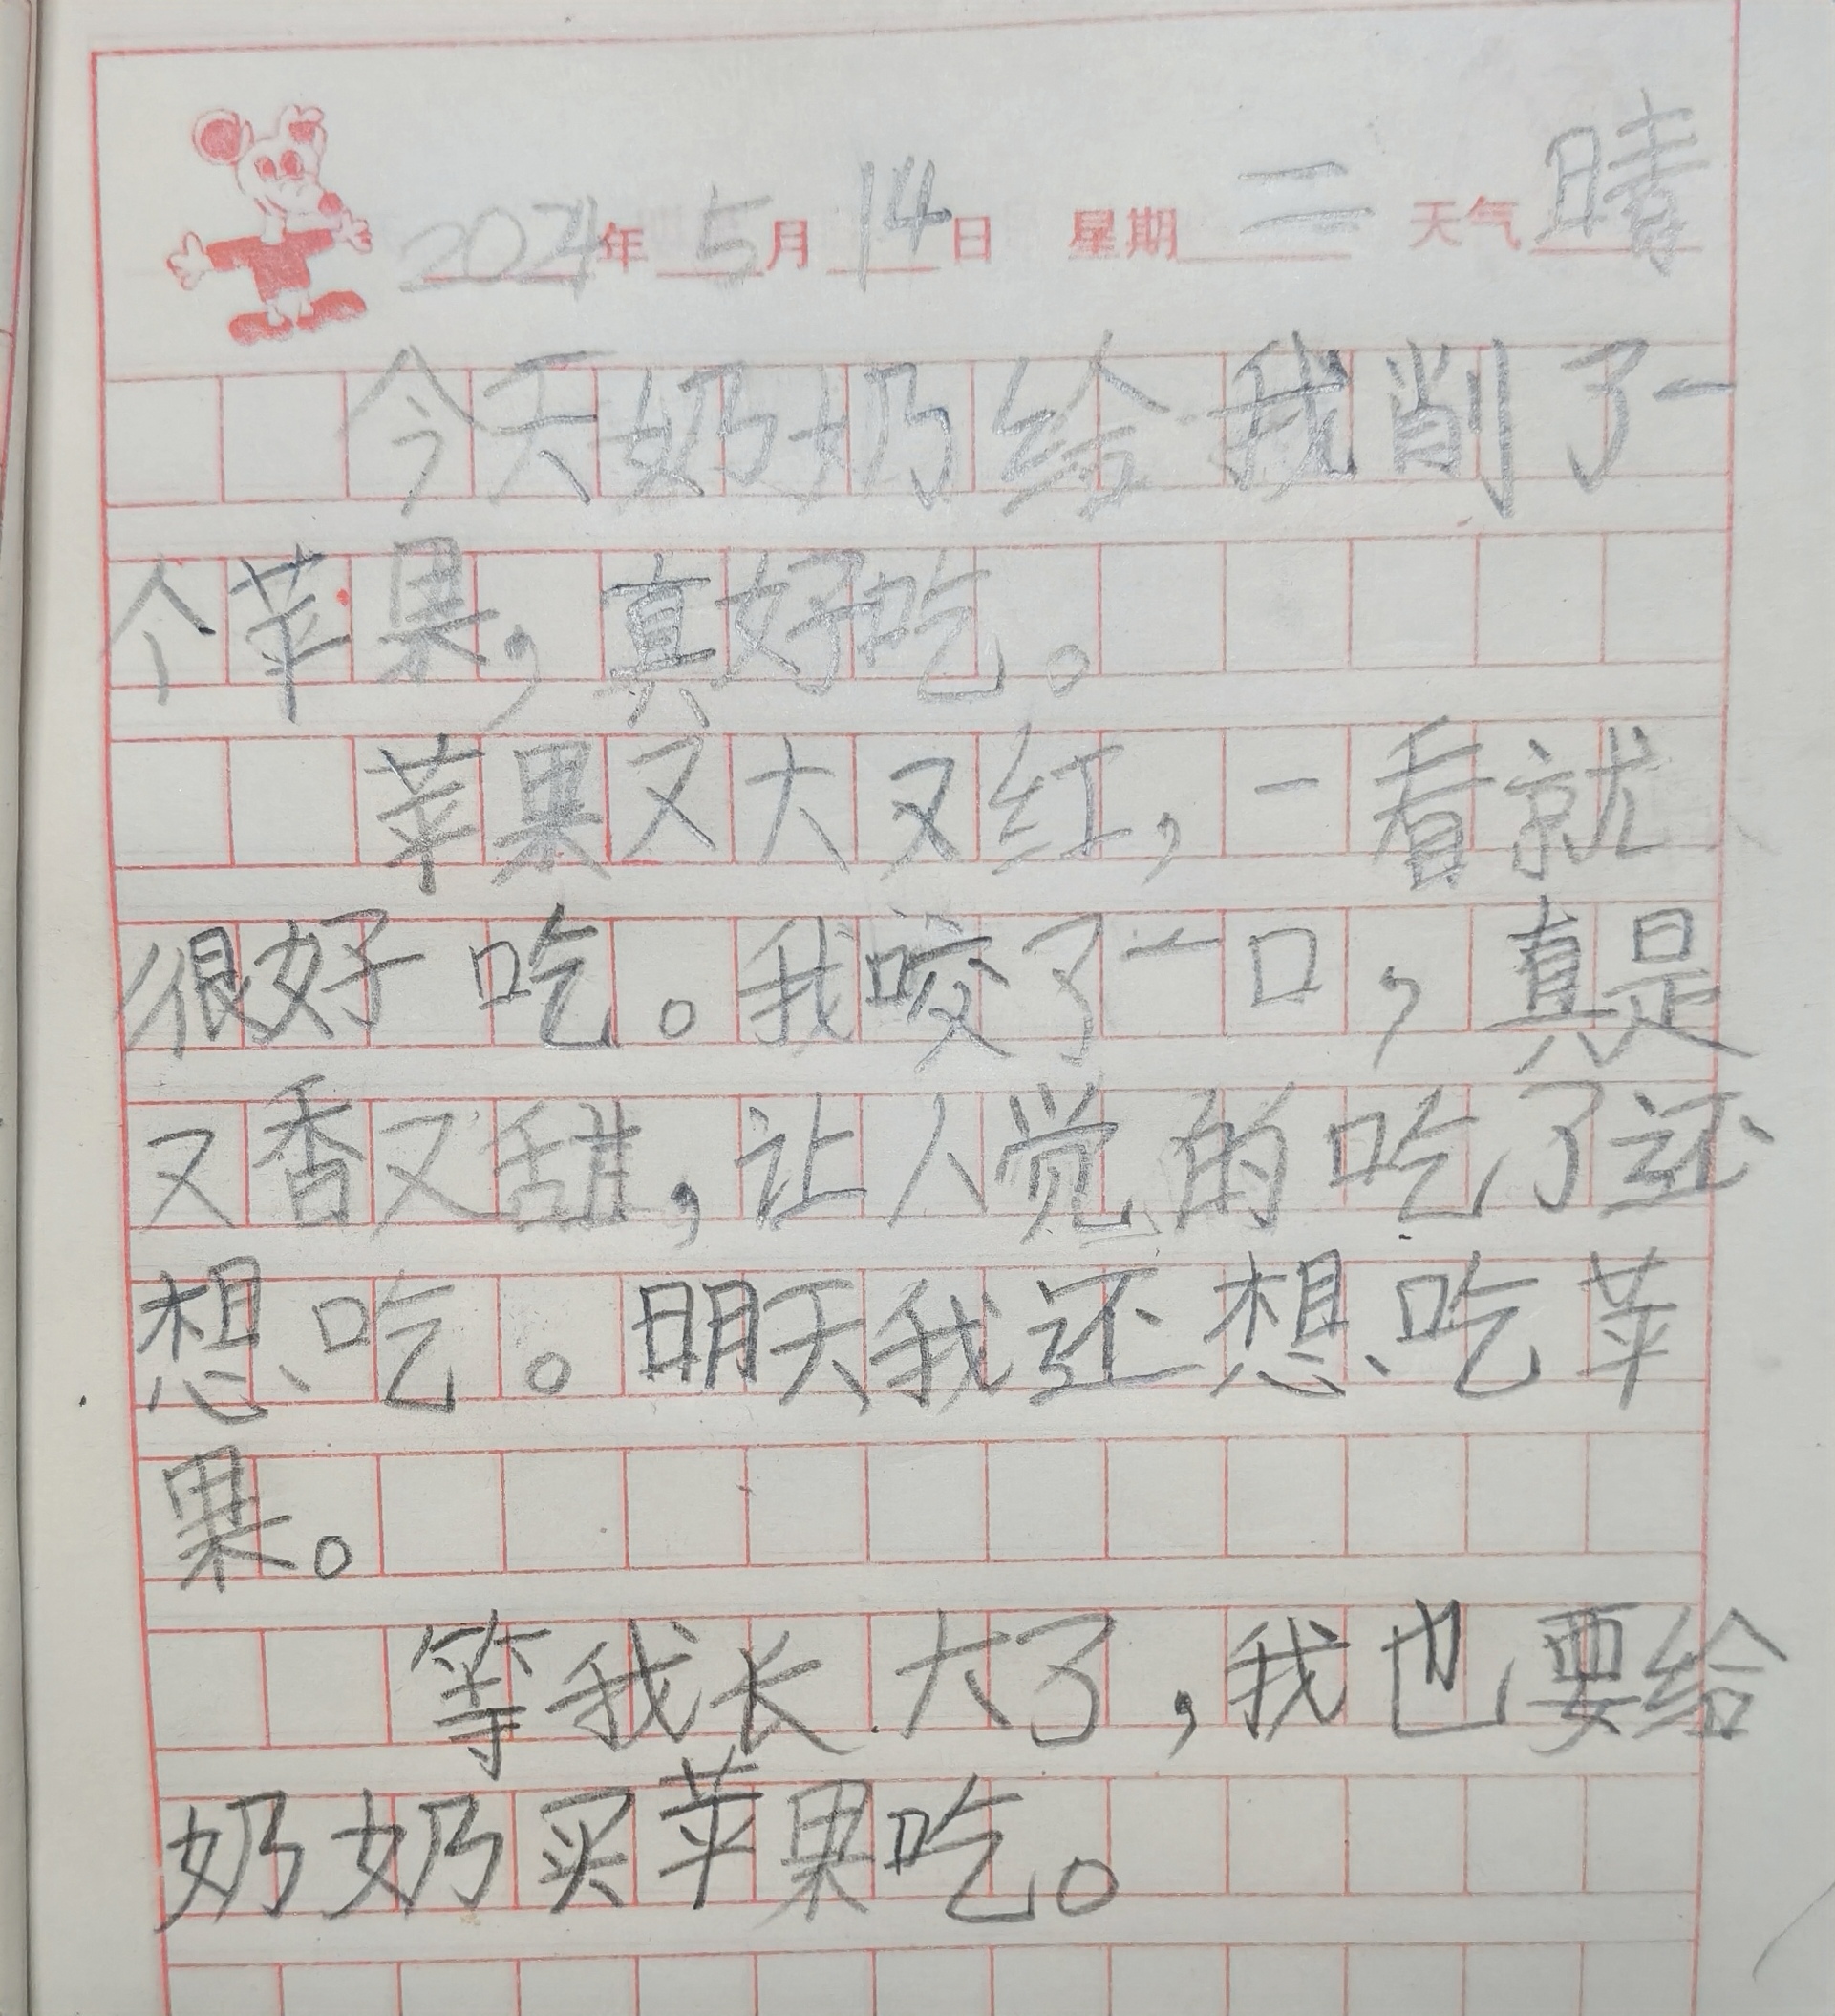 2024年5月14日 星期二 天气晴
今天奶奶给我削了一
个苹果，真好吃。
苹果又大又红，一看就
很好吃。我咬了一口，真是
又香又甜，让人觉的吃了还
想吃。明天我还想吃苹
果。
等我长大了，我也要给
奶奶买苹果吃。